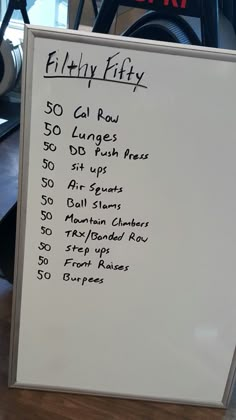 Filthy Fifty
50 Cal Row
50 Lunges
50 DB Push Press
50 Sit ups
50 Air Squats
50 Ball Slams
50 Mountain Climbers
50 TRX/Banded Row
50 Step ups
50 Front Raises
50 Burpees